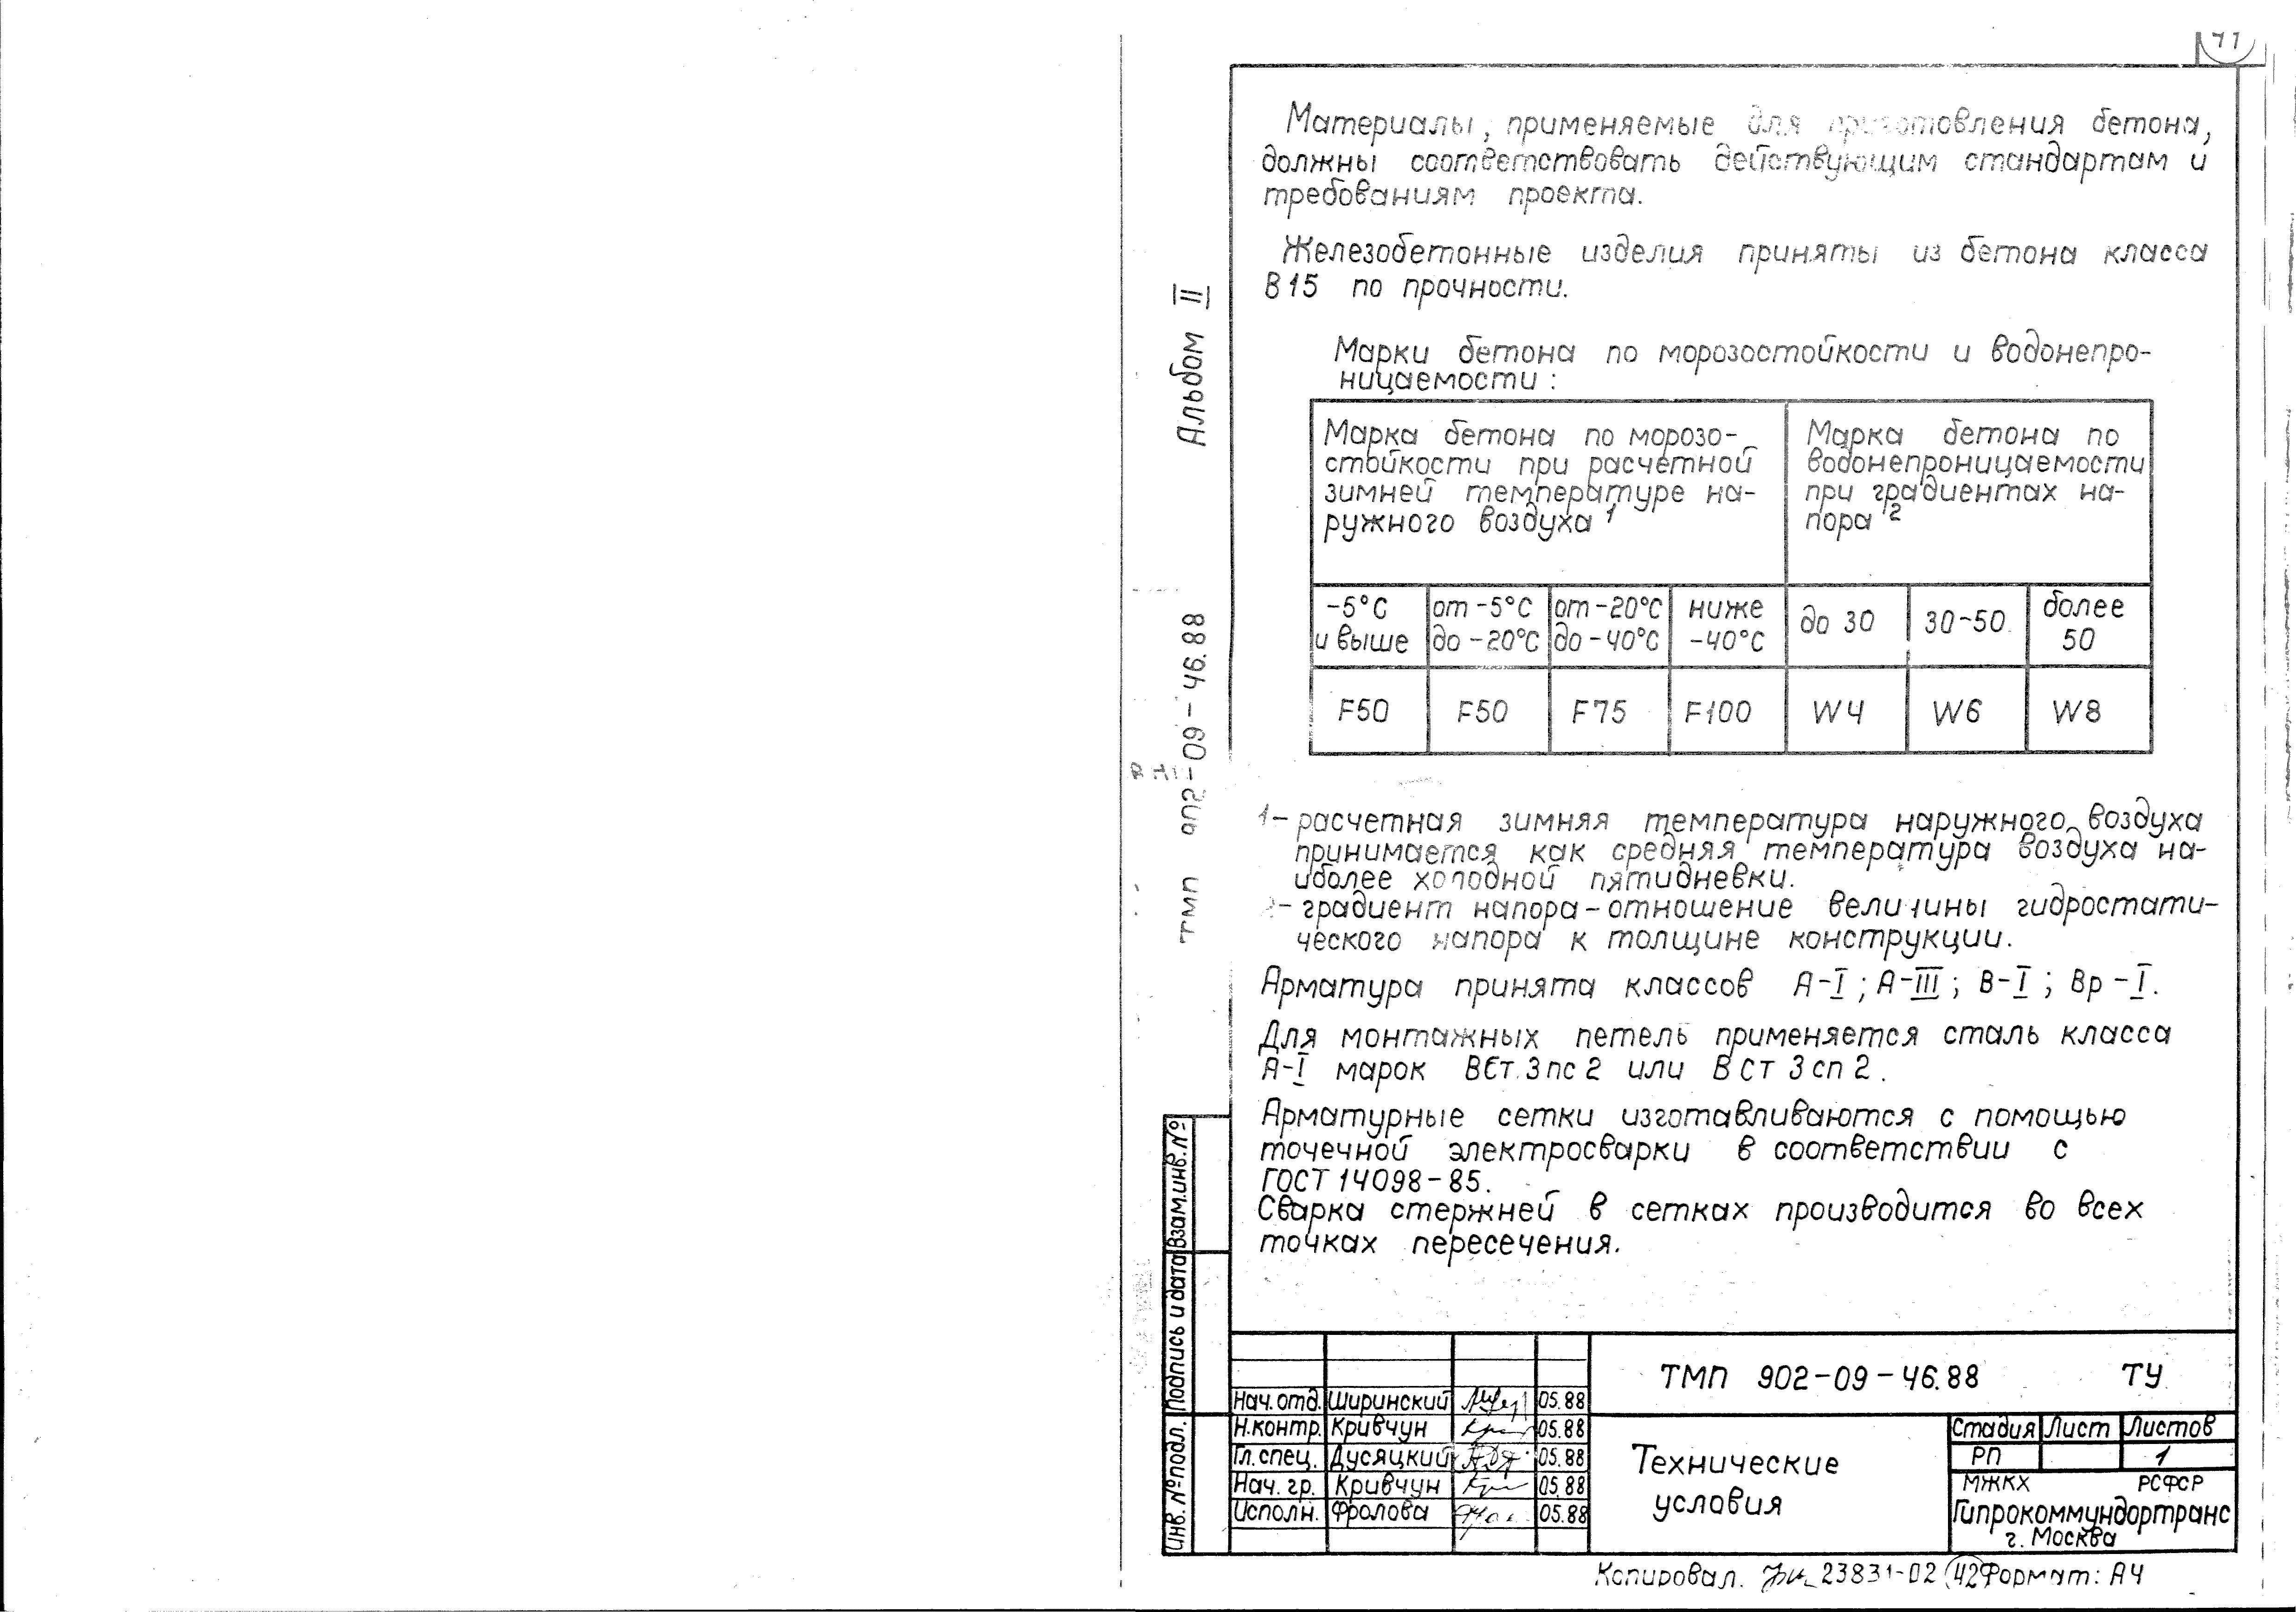 41
Материалы, применяемые для приготовления бетона,
должны соответствовать действующим стандартам и
требованиям проекта.
Железобетонные изделия приняты из бетона класса
В15 по прочности.
Марки бетона по морозостойкости и водонепро-
ницаемости:
Марка бетона по морозо-
стойкости при расчетной
зимней температуре на-
ружного воздуха 1
Марка бетона по
водонепроницаемости
при градиентах на-
пора 2
-5°С
и выше
от -5°С
до -20°С
от -20°С
до -40°С
ниже
-40°С
до 30
30-50
более
50
F50 F50 F75 F100 W4 W6 W8
1- расчетная зимняя температура наружного воздуха
принимается как средняя температура воздуха на-
иболее холодной пятидневки.
2- градиент напора - отношение величины гидростати-
ческого напора к толщине конструкции.
Арматура принята классов А-I; А-III; В-I; Вр-I.
Для монтажных петель применяется сталь класса
А-I марок ВСт.3пс2 или ВСт3сп2.
Арматурные сетки изготавливаются с помощью
точечной электросварки в соответствии с
ГОСТ 14098-85.
Сварка стержней в сетках производится во всех
точках пересечения.
Альбом II
ТМП 902-09-46.88
Взам.инв.№
Подпись и дата
Инв.№подл.
Нач.отд. Ширинский 05.88
Н.контр. Кривчун 05.88
Гл.спец. Дусяцкий 05.88
Нач.гр. Кривчун 05.88
Исполн. Фролова 05.88
ТМП 902-09-46.88 ТУ
Технические
условия
Стадия Лист Листов
РП 1
МЖКХ РСФСР
Гипрокоммундортранс
г. Москва
Копировал. 23831-02 42 Формат: А4